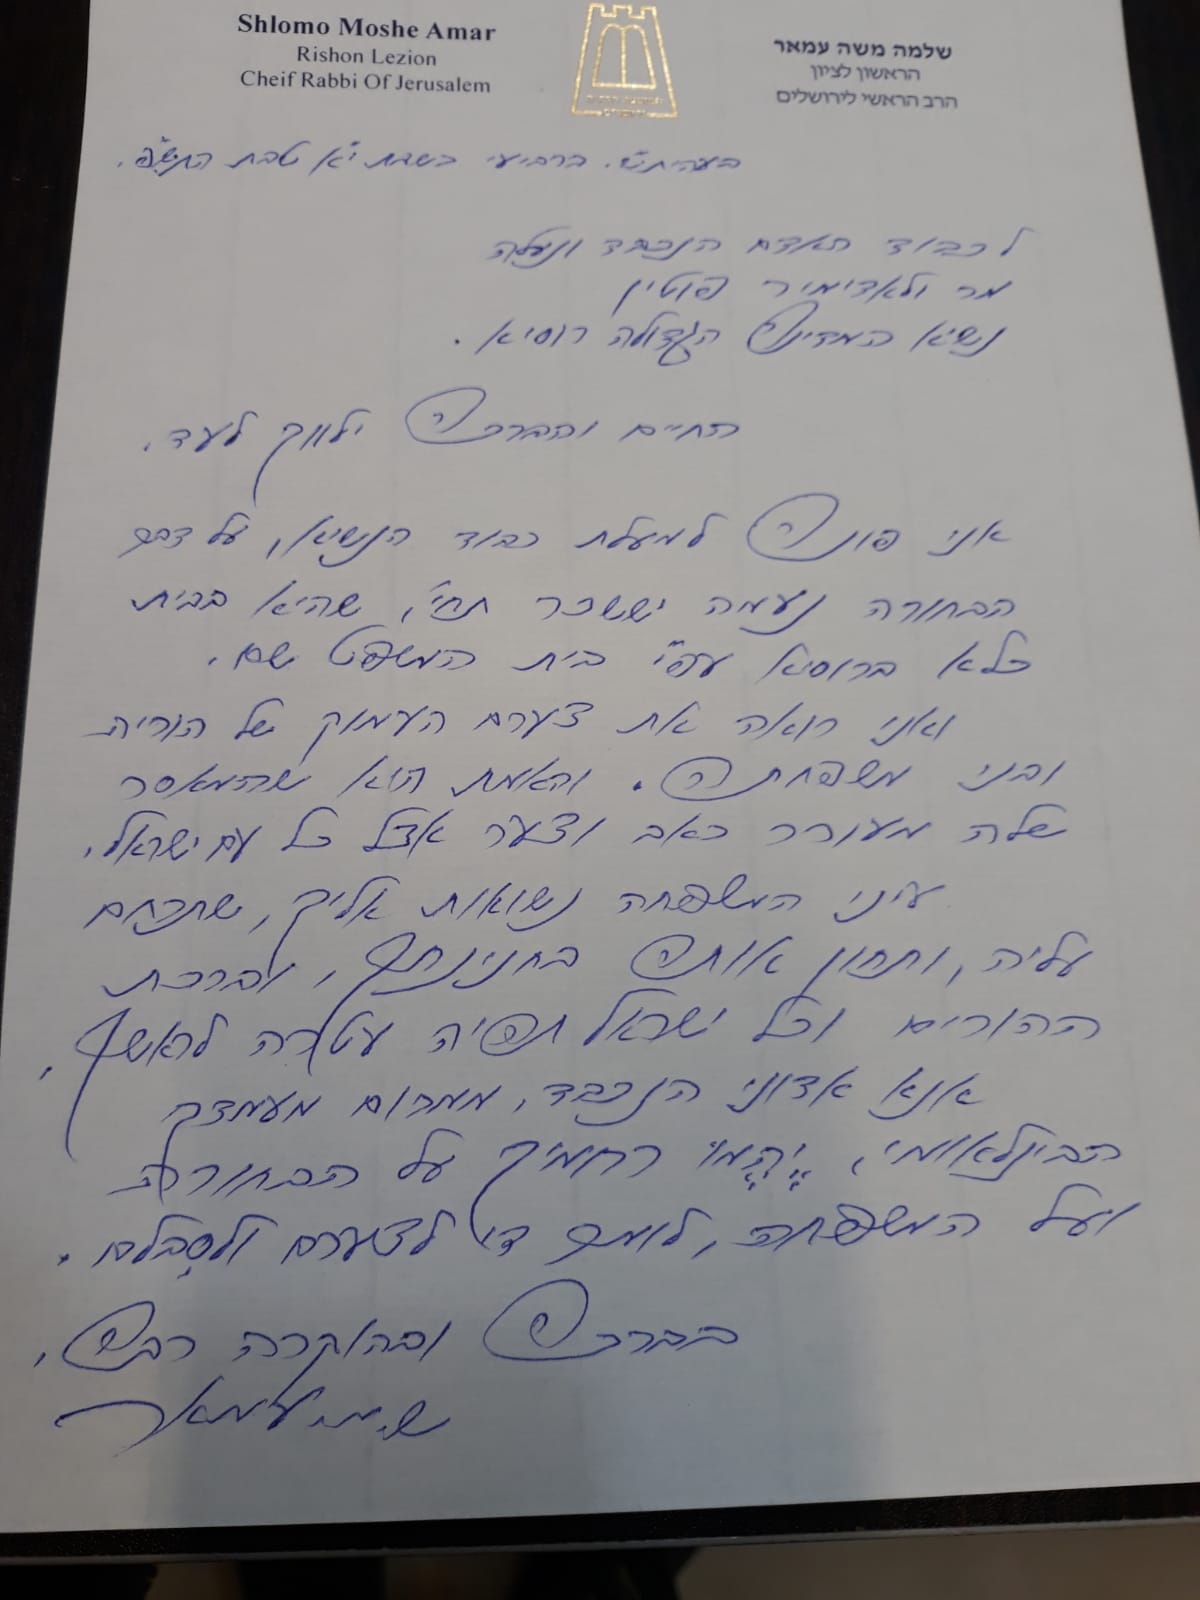 Shlomo Moshe Amar
Rishon Lezion
Cheif Rabbi Of Jerusalem
שלמה משה עמאר
הראשון לציון
הרב הראשי לירושלים
בעהית"ש. ברביעי בשבת י"א טבת התש"פ.
לכבוד האדם הנכבד ונעלה
מר ולאדימיר פוטין
נשיא המדינה הגדולה רוסיא.
החיים והברכה ילווך לעד.
אני פונה למעלת כבוד הנשיא, על דבר
הבחורה נעמה יששכר תחי', שהיא בבית
כלא ברוסיא עפ"י בית המשפט שם.
ואני רואה את צערם העמוק של הוריה
ובני משפחתה. והאמת היא שהמאסר
שלה מעורר כאב וצער אצל כל עם ישראל.
עיני המשפחה נשואות אליך, שתרחם
עליה, ותחון אותה בחנינתך, וברכת
ההורים וכל ישראל תהיה עטרה לראשך.
אנא אדוני הנכבד, ממרום מעמדך
הבינלאומי, יֶהֱמוּ רחמיך על הבחורה
ועל המשפחה, לומר די לצערם ולסִבלם.
בברכה ובהוקרה רבה,
ש.מ. עמאר